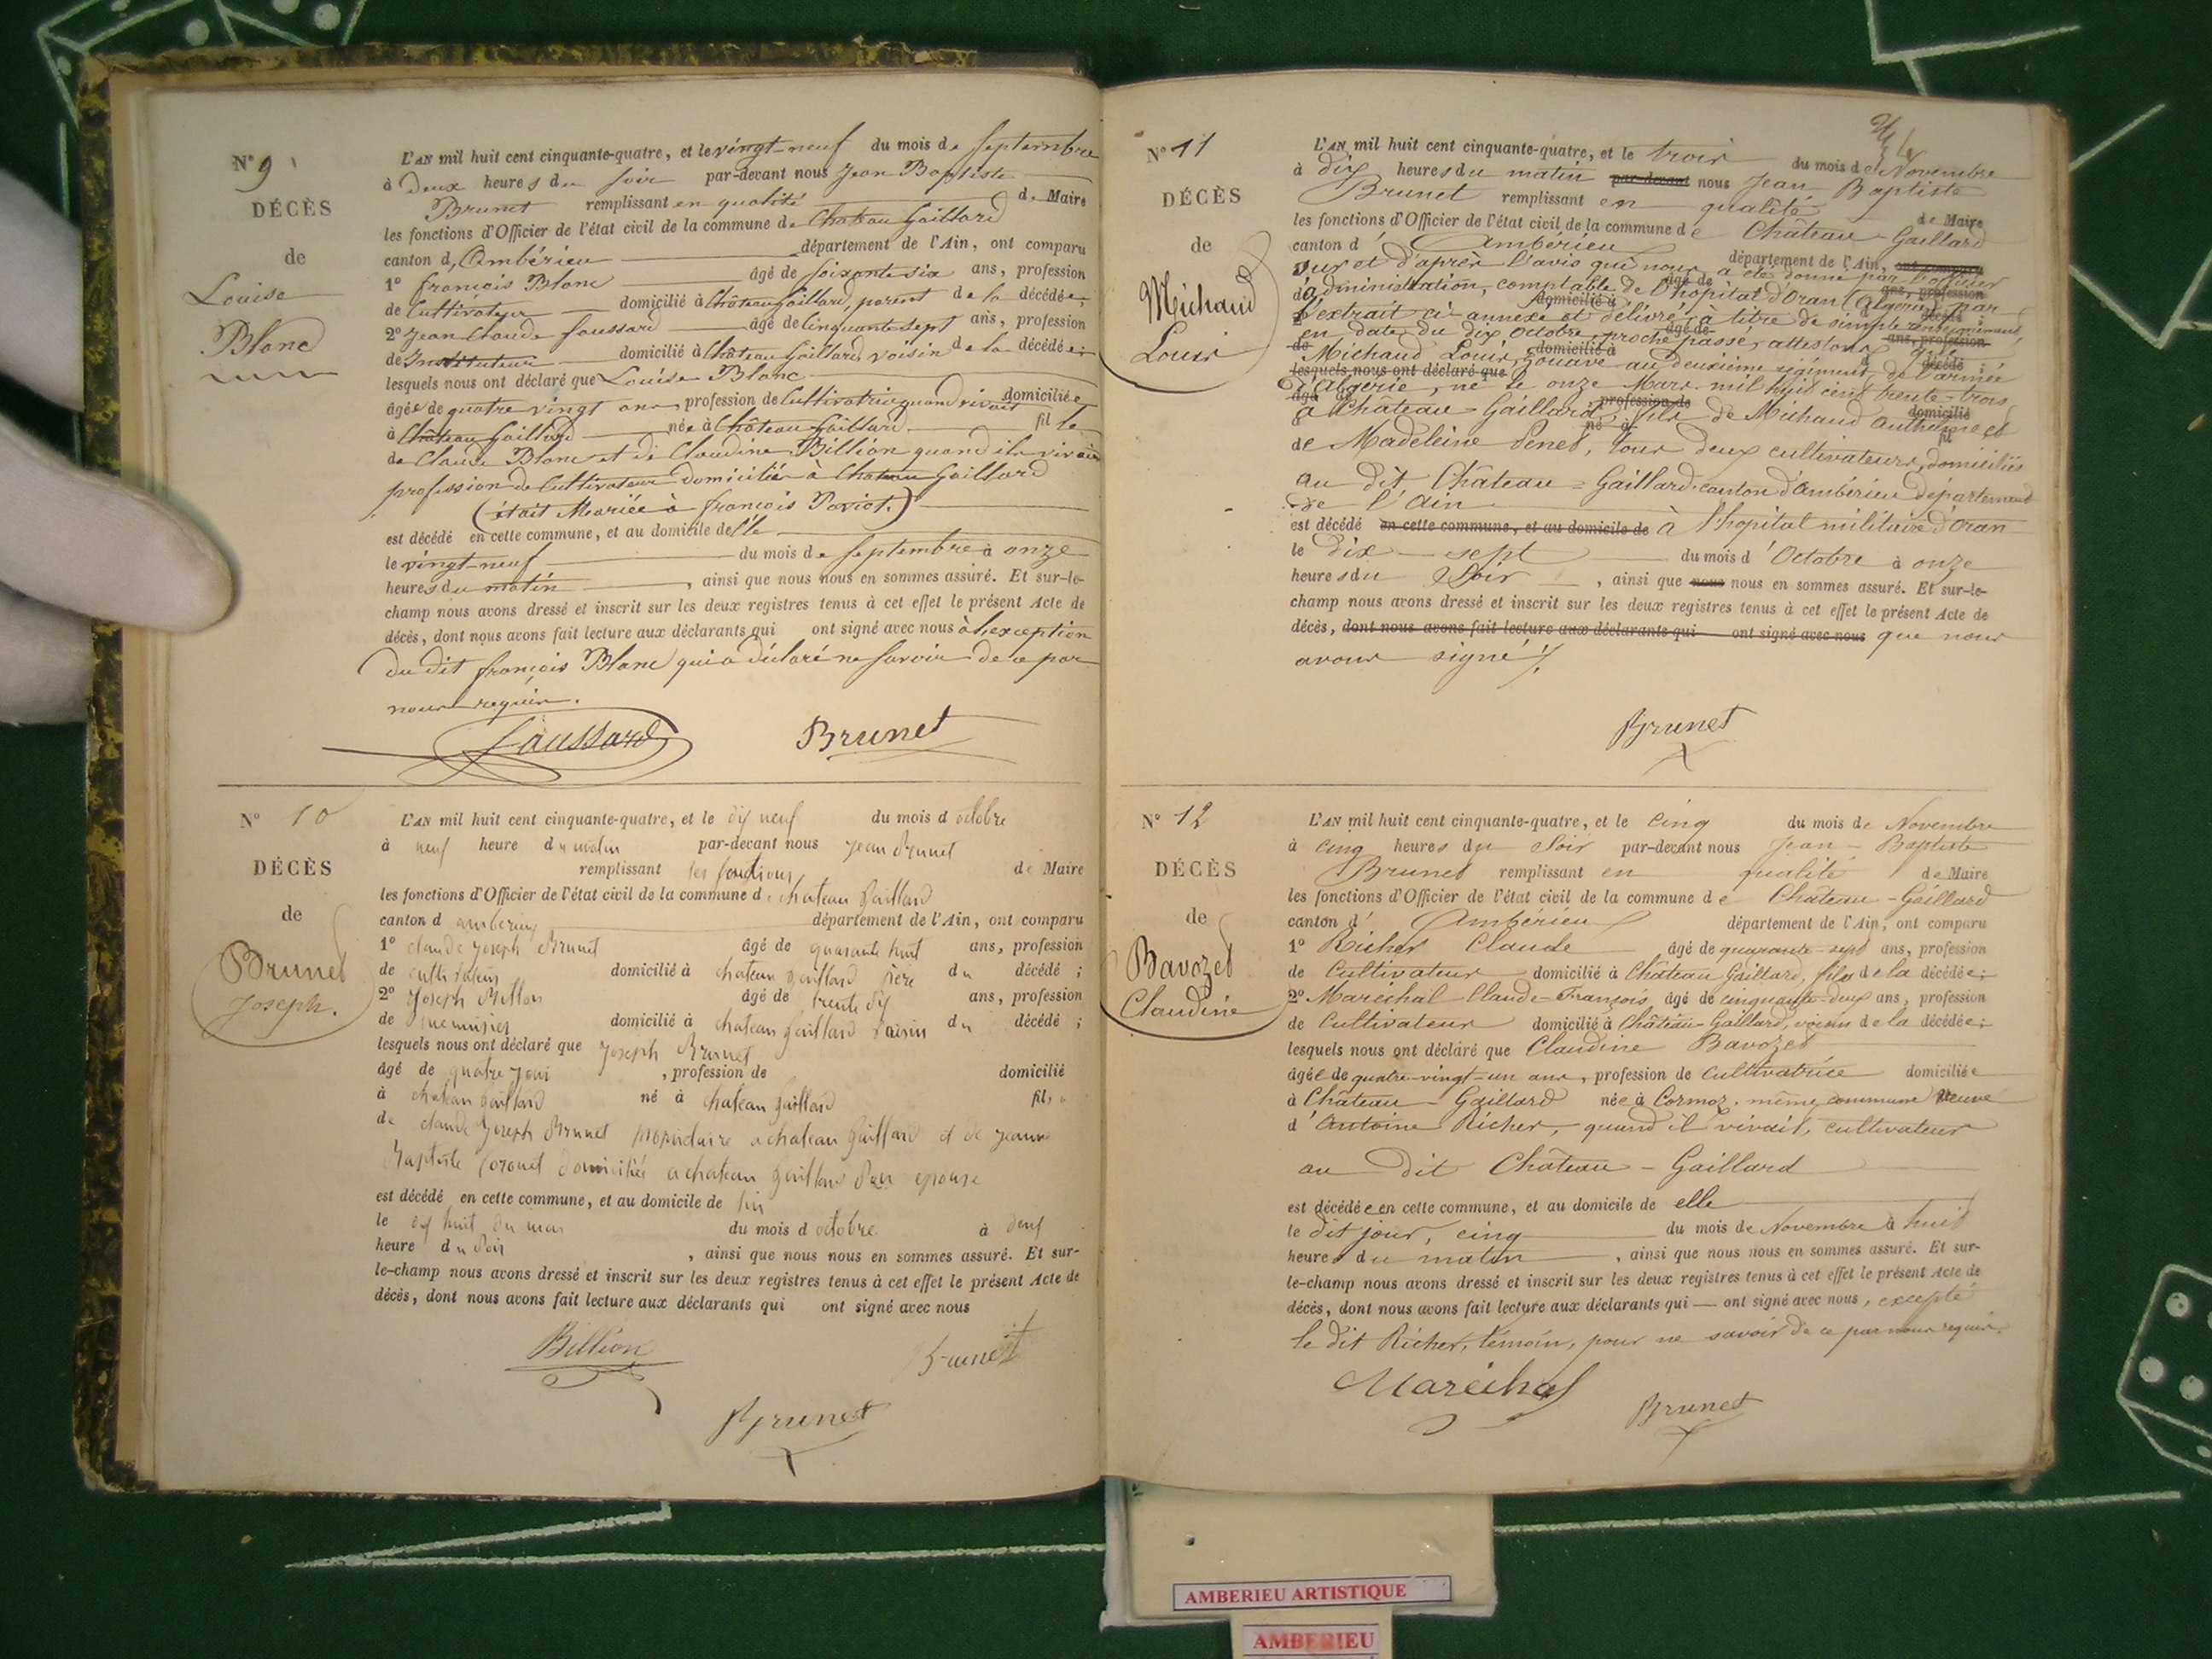 N° 9
DÉCÈS
de
Louise
Blanc
L'AN mil huit cent cinquante-quatre, et le vingt-neuf du mois de Septembre
à Deux heures du soir par-devant nous Jean Baptiste
Brunet remplissant en qualité de Maire
les fonctions d'Officier de l'état civil de la commune de Chateau Gaillard
canton d, Ambérieu département de l'Ain, ont comparu
1° françois Blanc âgé de soixante six ans, profession
de Cultivateur domicilié à Château Gaillard, parent de la décédée;
2° Jean Claude faussard âgé de Cinquante sept ans, profession
de Instituteur domicilié à Château Gaillard, voisin de la décédée;
lesquels nous ont déclaré que Louise Blanc
âgée de quatre vingt ans, profession de Cultivatrice quand vivait domiciliée
à Château Gaillard née à Château Gaillard fille
de Claude Blanc et de Claudine Billion quand ils vivaient
profession de Cultivateur domiciliés à Chateau Gaillard
(était Mariée à françois Pariot.)
est décédé en cette commune, et au domicile de elle
le vingt-neuf du mois de Septembre à onze
heures du matin, ainsi que nous nous en sommes assuré. Et sur-le-
champ nous avons dressé et inscrit sur les deux registres tenus à cet effet le présent Acte de
décès, dont nous avons fait lecture aux déclarants qui ont signé avec nous à l'exception
du dit françois Blanc qui a déclaré ne savoir de ce par
nous requis.
faussard Brunet
N° 10
DÉCÈS
de
Brunet
Joseph.
L'AN mil huit cent cinquante-quatre, et le dix neuf du mois d octobre
à neuf heure du matin par-devant nous Jean Brunet
remplissant les fonctions de Maire
les fonctions d'Officier de l'état civil de la commune d. chateau Gaillard
canton d amberieu département de l'Ain, ont comparu
1° claude Joseph Brunet âgé de quarante huit ans, profession
de cultivateur domicilié à chateau gaillard père du décédé;
2° Joseph Billion âgé de trente dix ans, profession
de menuisier domicilié à chateau gaillard voisin du décédé;
lesquels nous ont déclaré que Joseph Brunet
âgé de quatre jour, profession de domicilié
à chateau gaillard né à chateau gaillard fils
de claude Joseph Brunet propriétaire a chateau gaillard et de jeanne
Baptiste domiciliée a chateau gaillard son epouse
est décédé en cette commune, et au domicile de lui
le dix huit du mois du mois d octobre à neuf
heure du soir, ainsi que nous nous en sommes assuré. Et sur-
le-champ nous avons dressé et inscrit sur les deux registres tenus à cet effet le présent Acte de
décès, dont nous avons fait lecture aux déclarants qui ont signé avec nous
Billion Brunet
Brunet
N° 11
DÉCÈS
de
Michaud
Louis
L'AN mil huit cent cinquante-quatre, et le trois du mois de Novembre
à dix heures du matin par-devant nous Jean Baptiste
Brunet remplissant en qualité de Maire
les fonctions d'Officier de l'état civil de la commune de Château-Gaillard
canton d' Ambérieu département de l'Ain, ont comparu
sur et d'après l'avis qui nous a été donné par l'officier
d'administration, comptable de l'hôpital d'Oran (Algérie) par
l'extrait ci annexé et délivré à titre de simple renseignement
en date du dix octobre, proche passé, attestons que
Michaud Louis, zouave au deuxième régiment de l'armée
d'Algérie, né le onze Mars mil huit cent trente-trois
à Château-Gaillard, fils de Michaud Anthelme et
de Madeleine Penet, tous deux cultivateurs, domiciliés
au dit Château-Gaillard, canton d'Ambérieu, département
de l'Ain
est décédé en cette commune, et au domicile de à l'hôpital militaire d'Oran
le dix-sept du mois d'Octobre à onze
heures du Soir, ainsi que nous nous en sommes assuré. Et sur-le-
champ nous avons dressé et inscrit sur les deux registres tenus à cet effet le présent Acte de
décès, dont nous avons fait lecture aux déclarants qui ont signé avec nous que nous
avons signé ./.
Brunet
N° 12
DÉCÈS
de
Bavozet
Claudine
L'AN mil huit cent cinquante-quatre, et le Cinq du mois de Novembre
à cinq heures du Soir par-devant nous Jean-Baptiste
Brunet remplissant en qualité de Maire
les fonctions d'Officier de l'état civil de la commune de Château-Gaillard
canton d' Ambérieu département de l'Ain, ont comparu
1° Richer Claude âgé de quarante-sept ans, profession
de Cultivateur domicilié à Château Gaillard, fils de la décédée;
2° Maréchal Claude-François âgé de cinquante-deux ans, profession
de Cultivateur domicilié à Château-Gaillard, voisin de la décédée;
lesquels nous ont déclaré que Claudine Bavozet
âgée de quatre-vingt-un ans, profession de Cultivatrice domiciliée
à Château-Gaillard née à Cormoz, même commune veuve
d'Antoine Richer, quand il vivait, cultivateur
au dit Château-Gaillard
est décédée en cette commune, et au domicile de elle
le dit jour, cinq du mois de Novembre à huit
heures du matin, ainsi que nous nous en sommes assuré. Et sur-
le-champ nous avons dressé et inscrit sur les deux registres tenus à cet effet le présent Acte de
décès, dont nous avons fait lecture aux déclarants qui — ont signé avec nous, excepté
le dit Richer, témoin, pour ne savoir de ce par nous requis.
Maréchal Brunet
AMBERIEU ARTISTIQUE
AMBERIEU